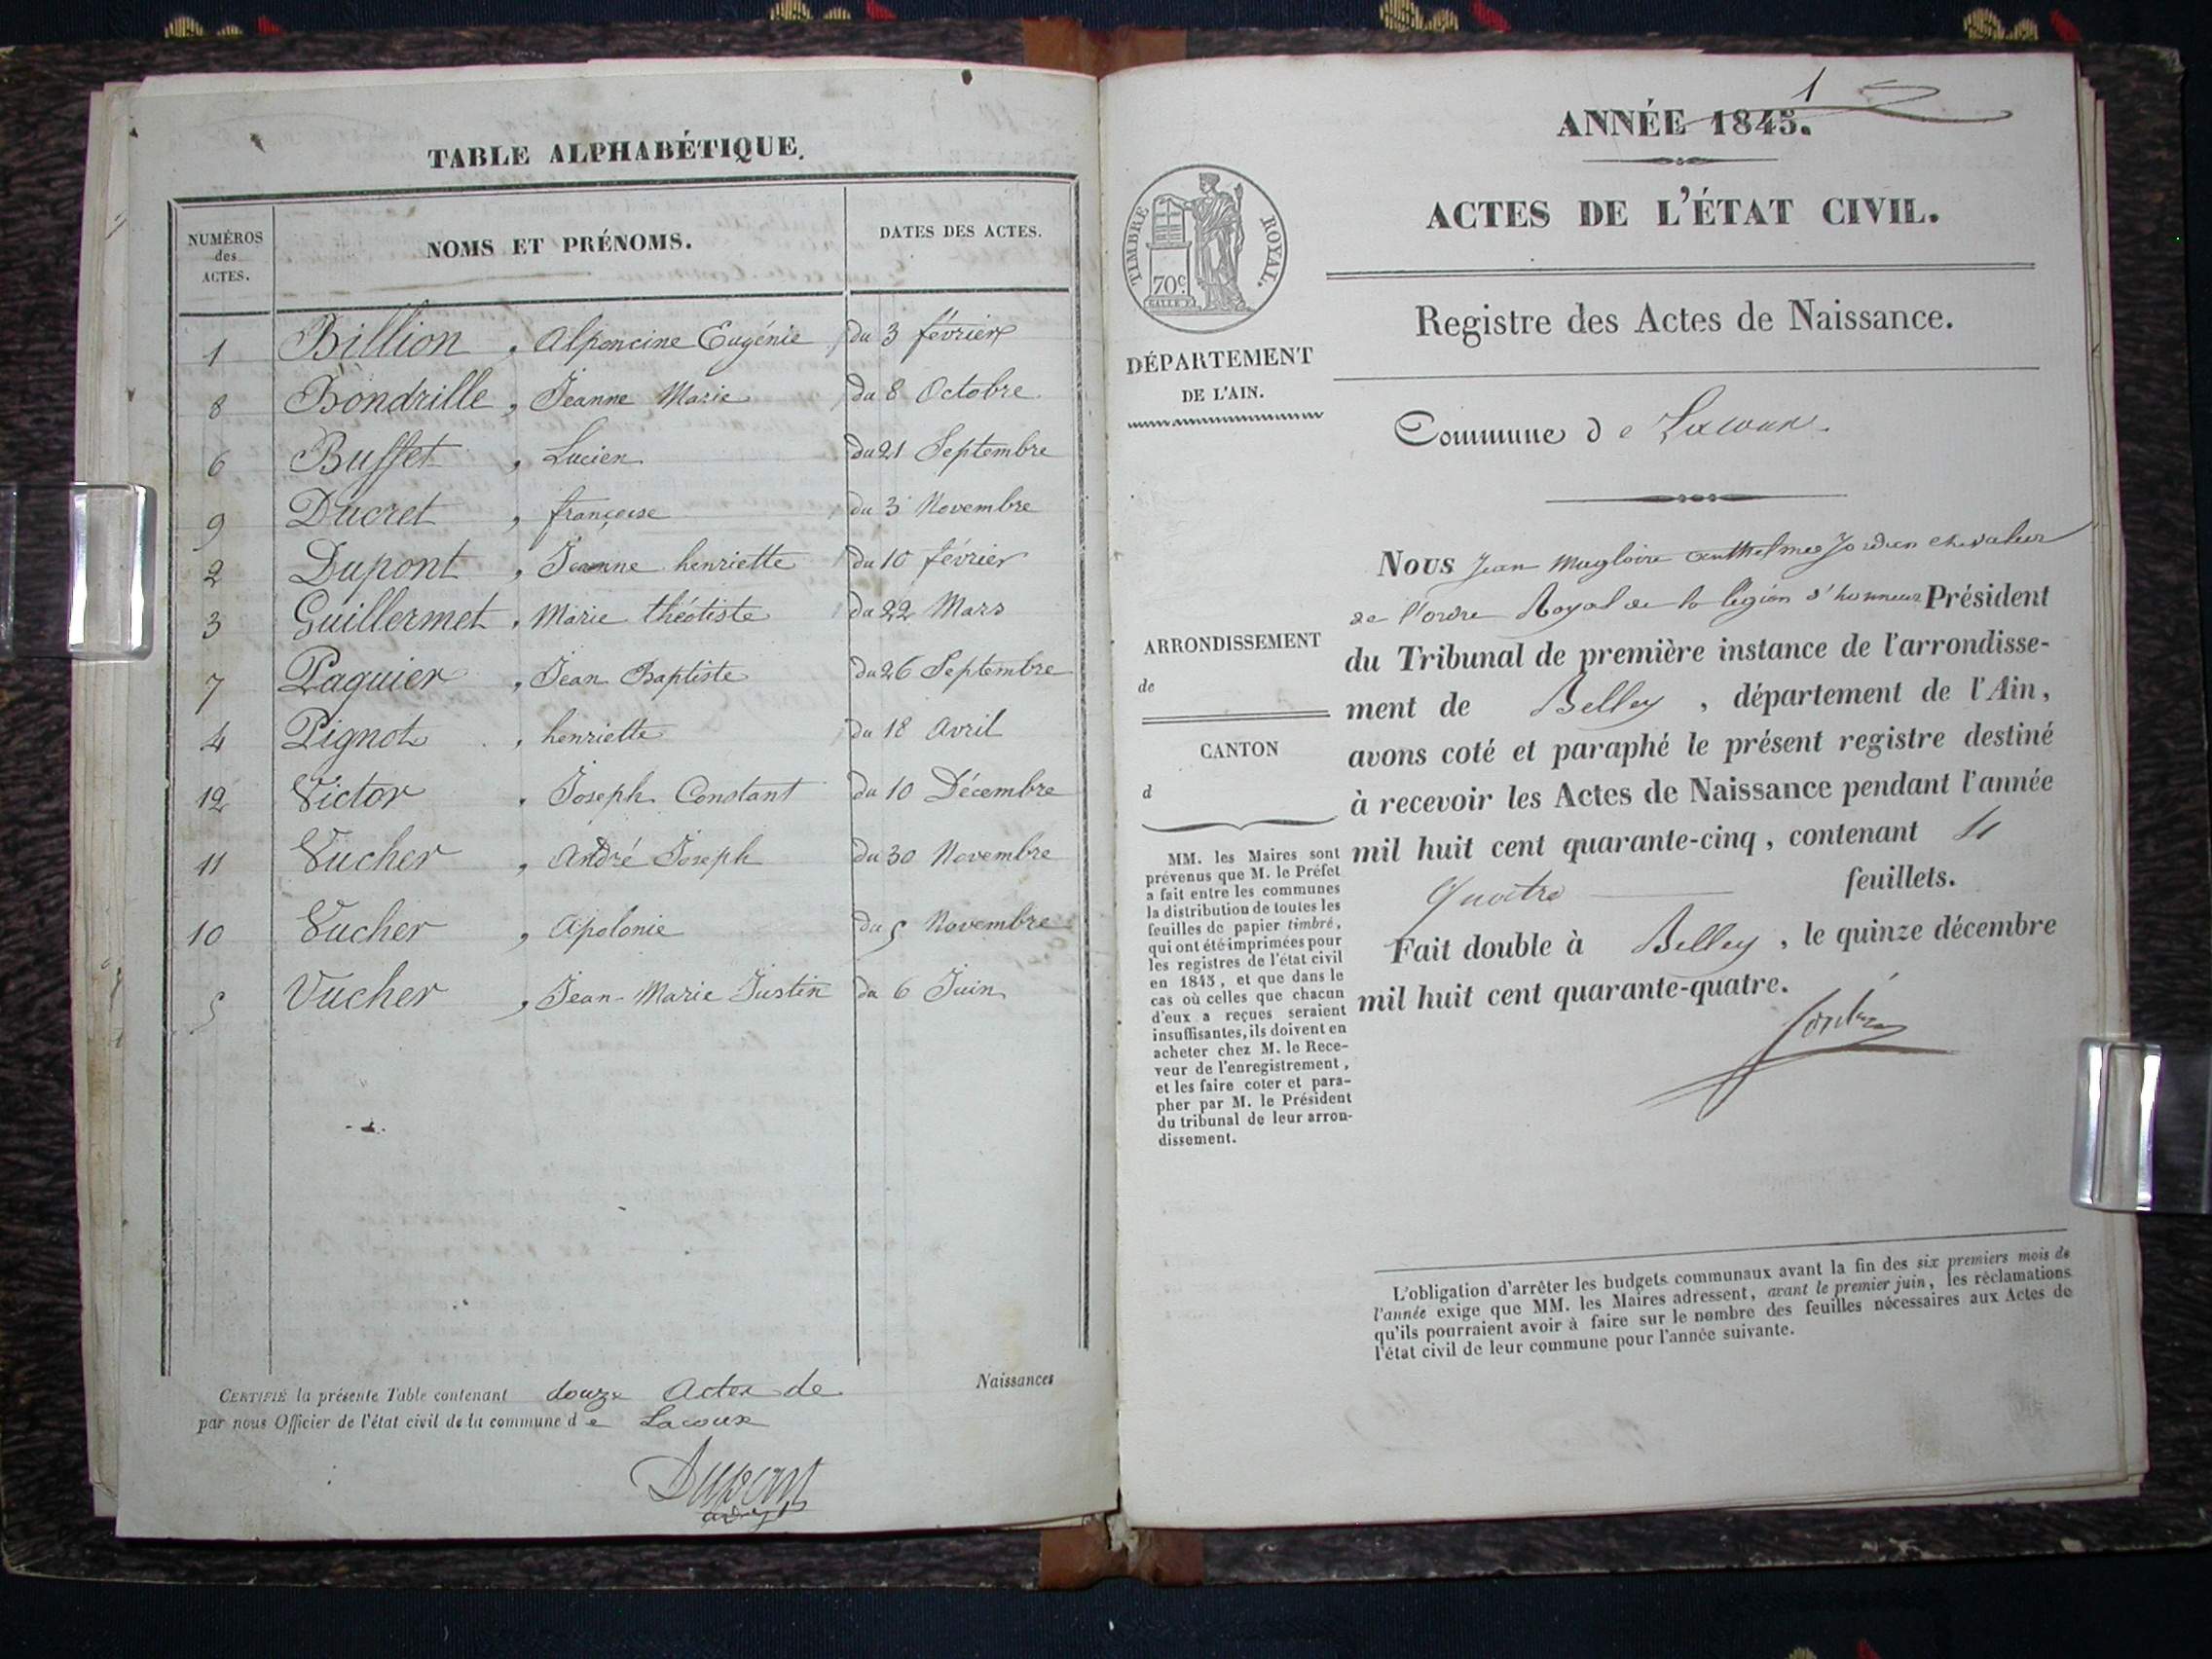 TABLE ALPHABÉTIQUE.
NUMÉROS des ACTES. NOMS ET PRÉNOMS. DATES DES ACTES.
1 Billion, Alponcine Eugénie du 3 février
8 Bondrille, Jeanne Marie du 8 Octobre
6 Buffet, Lucien du 21 Septembre
9 Ducret, françoise du 3 Novembre
2 Dupont, Jeanne henriette du 10 février
3 Guillermet, Marie théotiste du 22 Mars
7 Paquier, Jean Baptiste du 26 Septembre
4 Pignot, henriette du 18 Avril
12 Victor, Joseph Constant du 10 Décembre
11 Vucher, André Joseph du 30 Novembre
10 Vucher, Apolonie du 5 Novembre
5 Vucher, Jean-Marie Justin du 6 Juin
CERTIFIÉ la présente Table contenant douze Actes de Naissances
par nous Officier de l'état civil de la commune d e Lacoux
Dupont
1
ANNÉE 1845.
ACTES DE L'ÉTAT CIVIL.
TIMBRE ROYAL.
70c.
Registre des Actes de Naissance.
DÉPARTEMENT
DE L'AIN.
Commune d e Lacoux.
ARRONDISSEMENT
de
CANTON
d
MM. les Maires sont
prévenus que M. le Préfet
a fait entre les communes
la distribution de toutes les
feuilles de papier timbré,
qui ont été imprimées pour
les registres de l'état civil
en 1845, et que dans le
cas où celles que chacun
d'eux a reçues seraient
insuffisantes, ils doivent en
acheter chez M. le Rece-
veur de l'enregistrement,
et les faire coter et para-
pher par M. le Président
du tribunal de leur arron-
dissement.
Nous Jean Magloire anthelme Jordan chevalier
de l'ordre Royal de la légion d'honneur Président
du Tribunal de première instance de l'arrondisse-
ment de Belley, département de l'Ain,
avons coté et paraphé le présent registre destiné
à recevoir les Actes de Naissance pendant l'année
mil huit cent quarante-cinq, contenant 4
quatre feuillets.
Fait double à Belley, le quinze décembre
mil huit cent quarante-quatre.
Jordan
L'obligation d'arrêter les budgets communaux avant la fin des six premiers mois de
l'année exige que MM. les Maires adressent, avant le premier juin, les réclamations
qu'ils pourraient avoir à faire sur le nombre des feuilles nécessaires aux Actes de
l'état civil de leur commune pour l'année suivante.